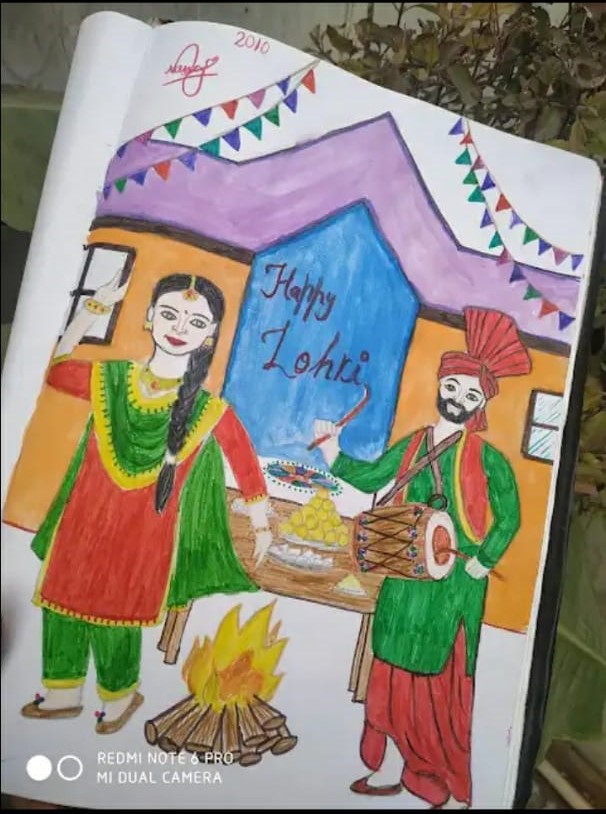 2010
Happy
Lohri
REDMI NOTE 6 PRO
MI DUAL CAMERA